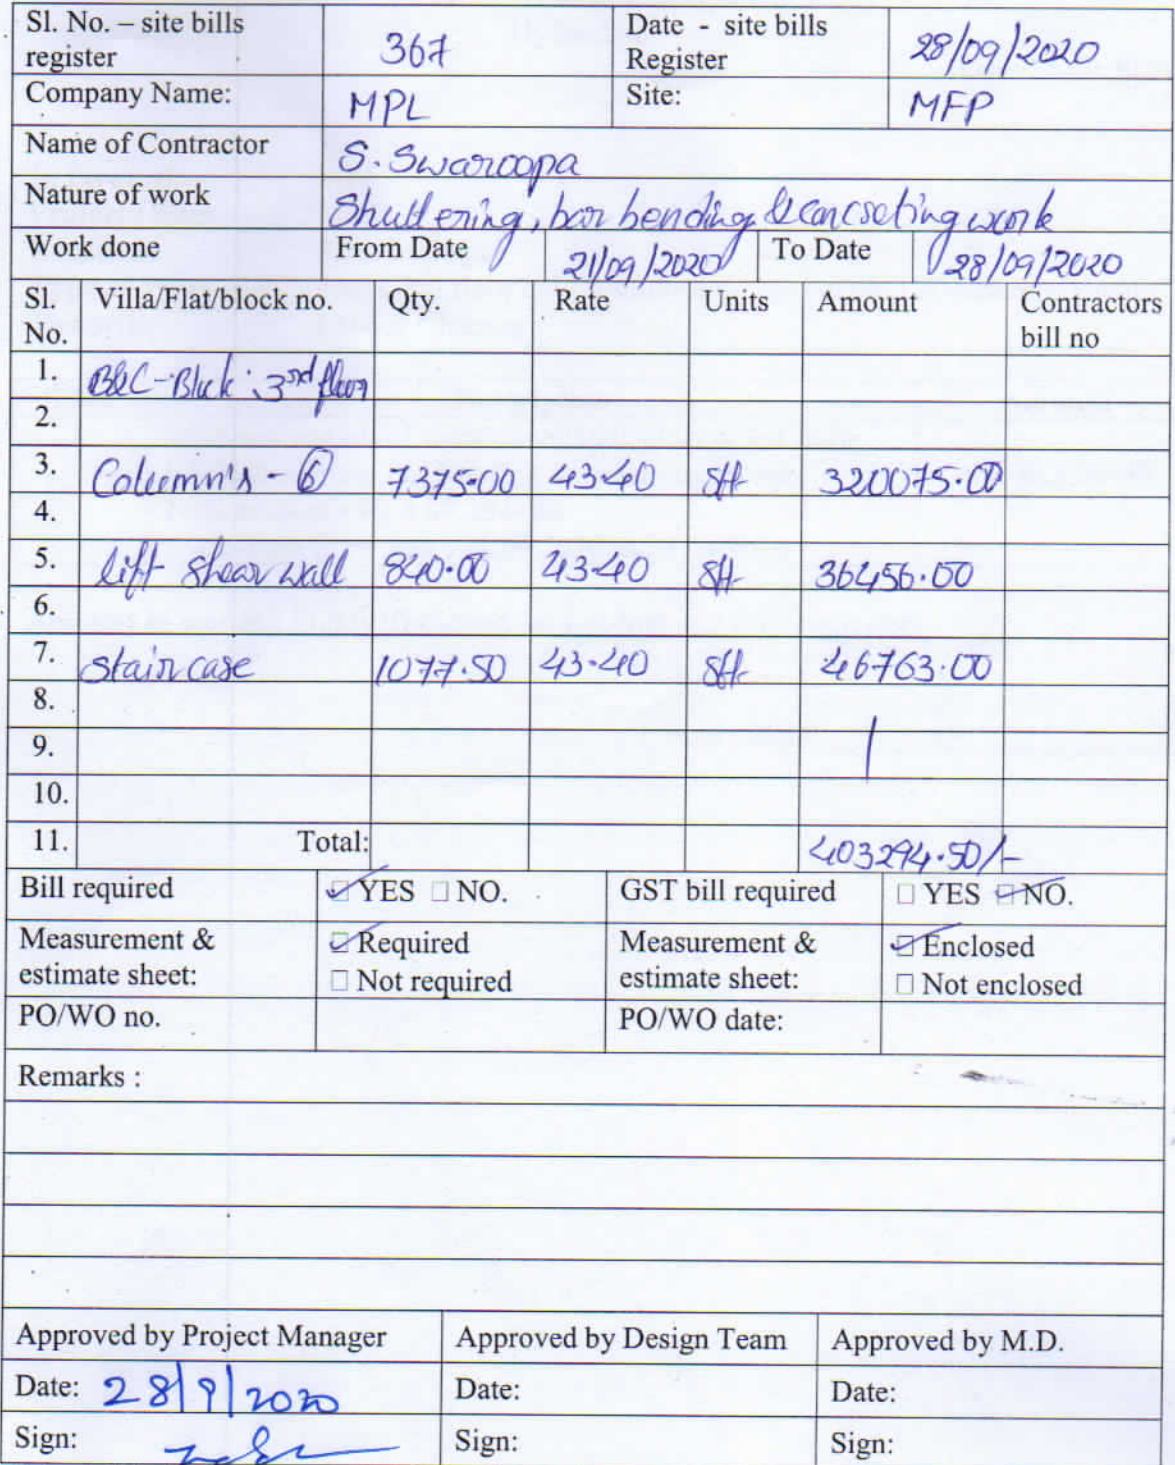 Sl. No. – site bills register 367 Date - site bills Register 28/09/2020
Company Name: MPL Site: MFP
Name of Contractor S. Swaroopa
Nature of work Shuttering, bar bending & concseting work
Work done From Date 21/09/2020 To Date 28/09/2020
Sl. No. Villa/Flat/block no. Qty. Rate Units Amount Contractors bill no
1. B&C-Block: 3rd floor
2.
3. Column's - 6 7375.00 43.40 sft 320075.00
4.
5. lift shear wall 840.00 43.40 sft 36456.00
6.
7. Staircase 1077.50 43.40 sft 46763.00
8.
9.
10.
11. Total: 403294.50/-
Bill required ☑ YES □ NO. GST bill required □ YES ☑ NO.
Measurement & estimate sheet: ☑ Required □ Not required Measurement & estimate sheet: ☑ Enclosed □ Not enclosed
PO/WO no. PO/WO date:
Remarks :
Approved by Project Manager Approved by Design Team Approved by M.D.
Date: 28/9/2020 Date: Date:
Sign: Sign: Sign: